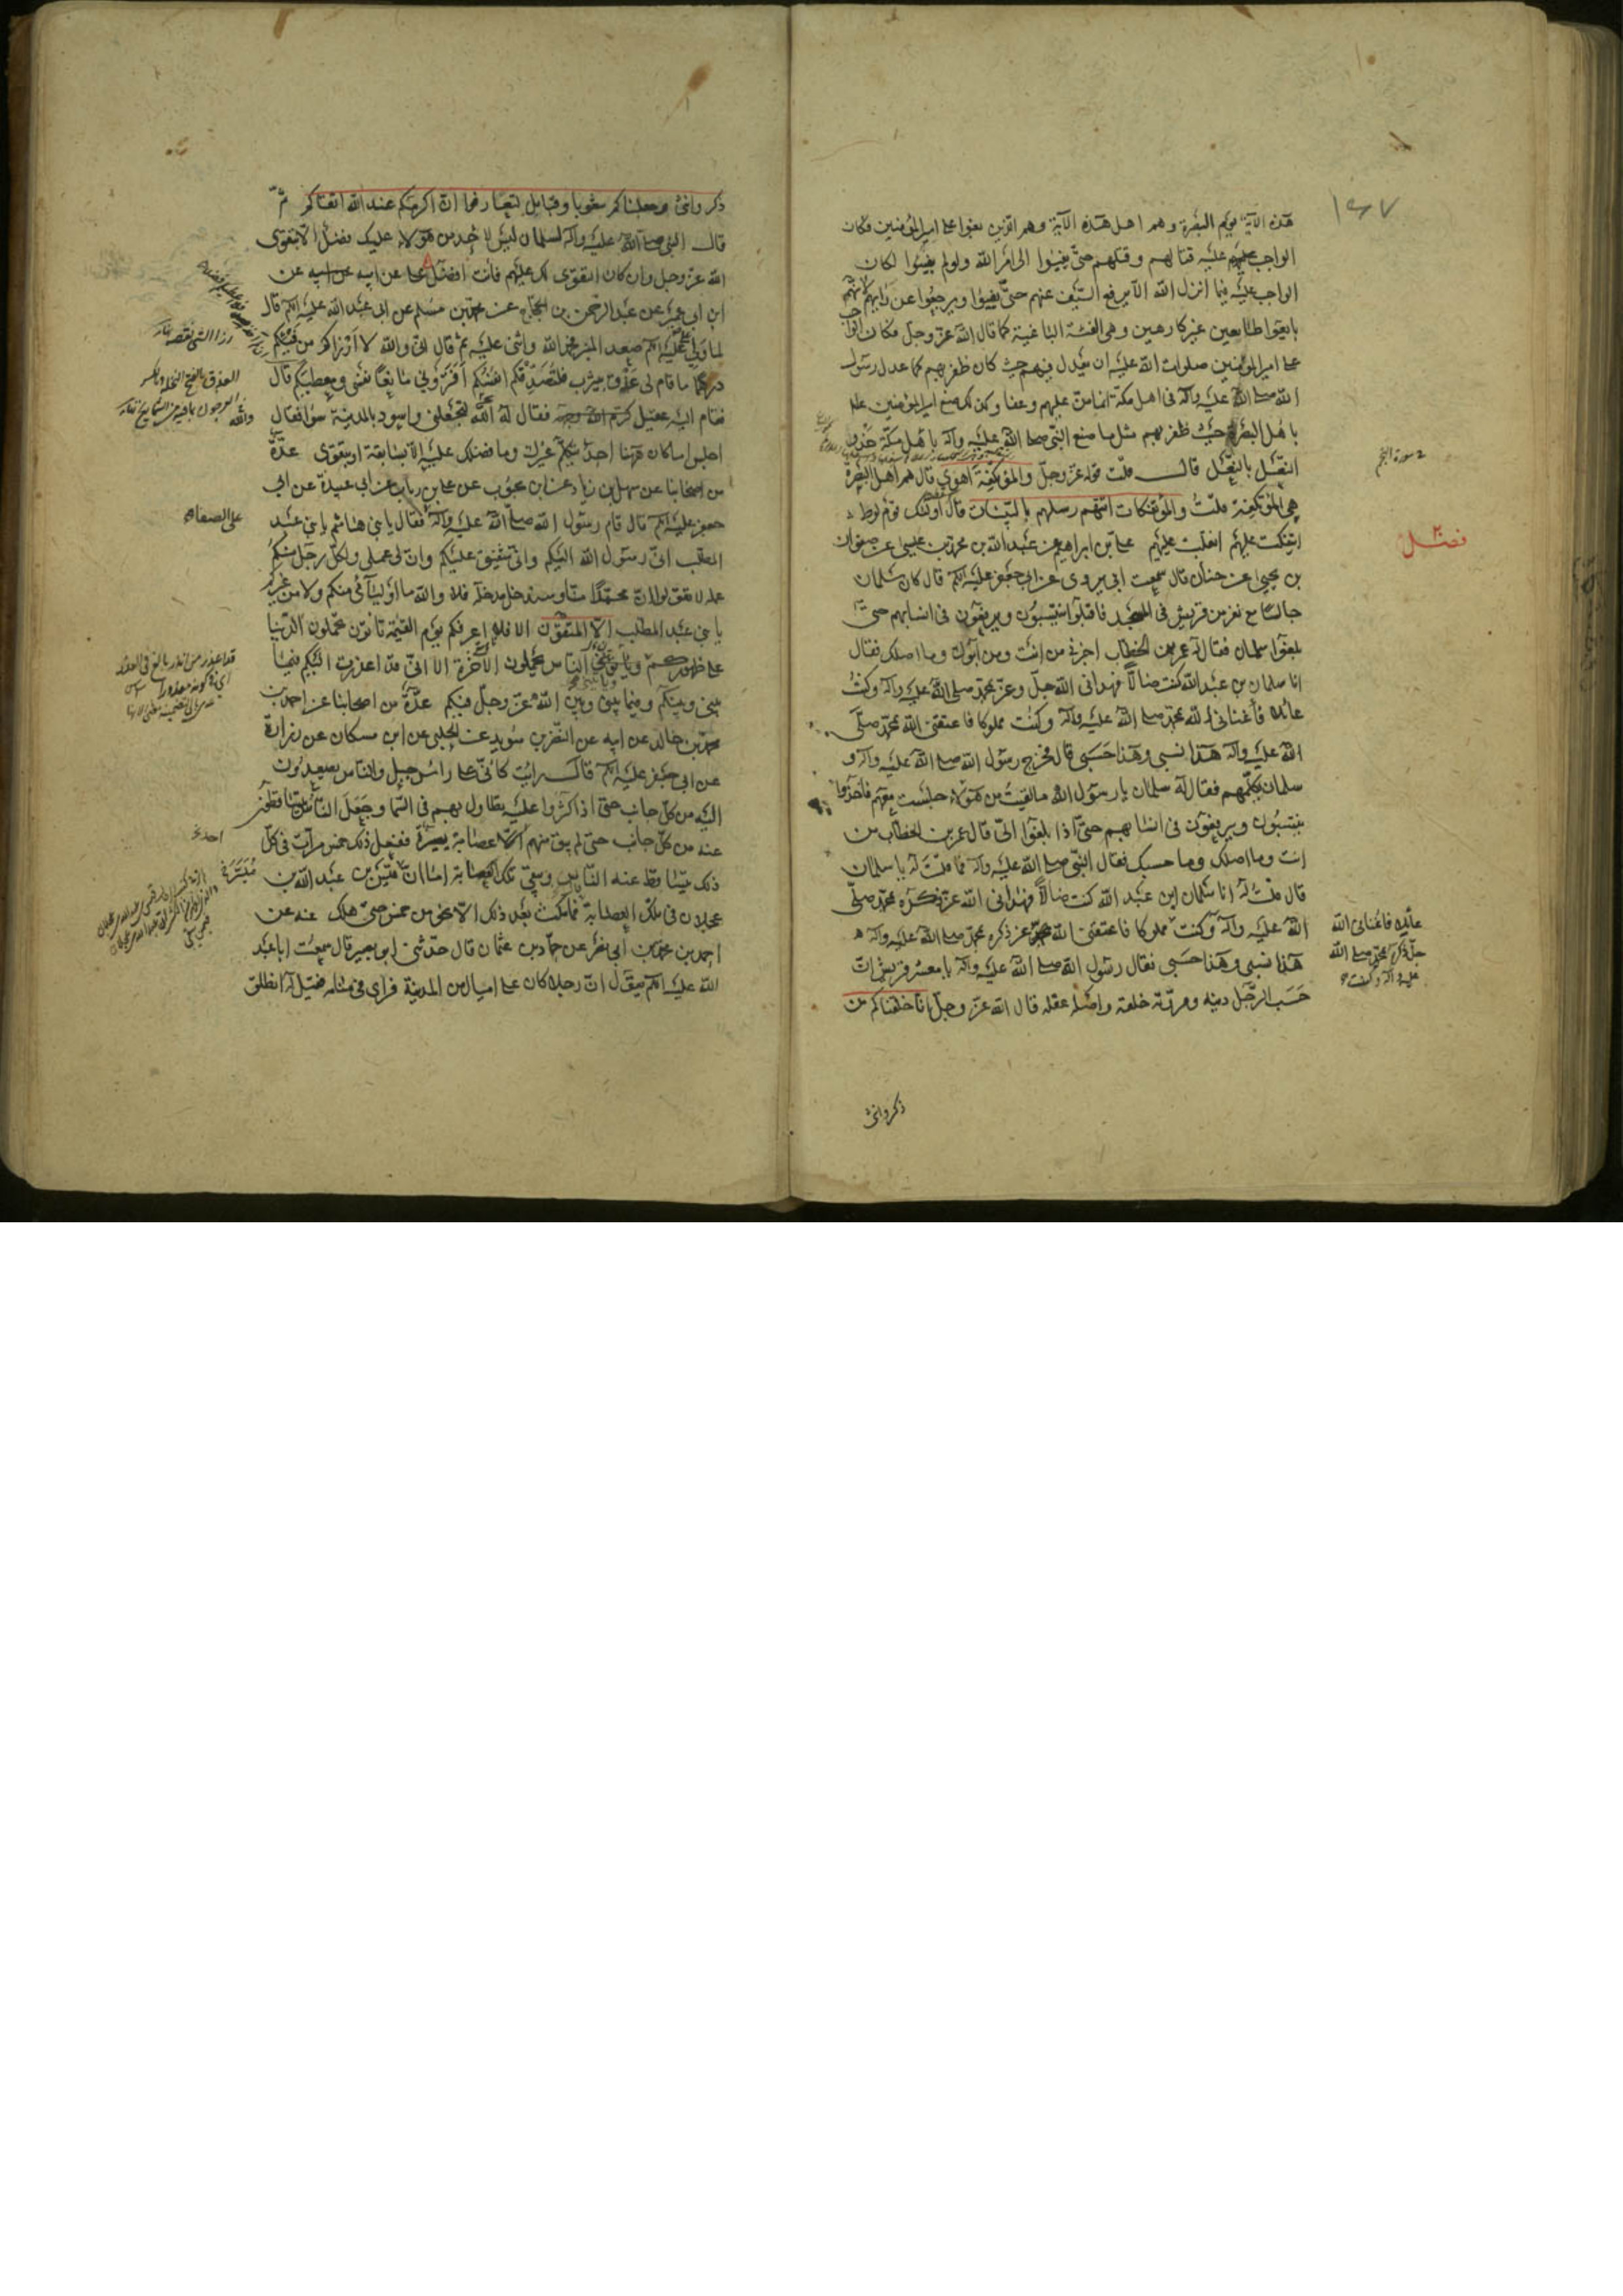 هذه الآية يوم البصرة وهم اهل هذه الآية وهم الذين بغوا على امير المؤمنين فكان
الواجب عليه قتالهم وقتلهم حتى يفيئوا الى امر الله ولو لم يفيئوا لكان
الواجب عليه فيما انزل الله الا يرفع السيف عنهم حتى يفيئوا ويرجعوا عن رأيهم لانهم
بايعوا طائعين غير كارهين وهي الفئة الباغية كما قال الله عز وجل فكان الواجب
على امير المؤمنين صلوات الله عليه ان يعدل فيهم حيث كان ظفر بهم كما عدل رسول
الله صلى الله عليه وآله في اهل مكة انما منّ عليهم وعفا وكذلك صنع امير المؤمنين علم
باهل البصرة حيث ظفر بهم مثل ما صنع النبي صلى الله عليه وآله باهل مكة حذو
النعل بالنعل قال قلت قوله عز وجل والمؤتفكة اهوى قال هم اهل البصرة
هي المؤتفكة قلت والمؤتفكات اتتهم رسلهم بالبينات قال اولئك قوم لوط
ائتفكت عليهم انقلبت عليهم علي بن ابراهيم عن عبد الله بن محمد بن عيسى عن صفوان
بن يحيى عن حنان قال سمعت ابي يروي عن ابي جعفر عليه السلم قال كان سلمان
جالسا مع نفر من قريش في المسجد فاقبلوا ينتسبون ويرفعون في انسابهم حتى
بلغوا سلمان فقال له عمر بن الخطاب اخبرني من انت ومن ابوك وما اصلك فقال
انا سلمان بن عبد الله كنت ضالا فهداني الله جل وعز بمحمد صلى الله عليه وآله وكنت
عائلا فأغناني الله بمحمد صلى الله عليه وآله وكنت مملوكا فاعتقني الله بمحمد صلى
الله عليه وآله هذا نسبي وهذا حسبي قال فخرج رسول الله صلى الله عليه وآله و
سلمان يكلمهم فقال له سلمان يا رسول الله ما لقيت من هؤلاء جلست معهم فاخذوا
ينتسبون ويرفعون في انسابهم حتى اذا بلغوا اليّ قال عمر بن الخطاب من
انت وما اصلك وما حسبك فقال النبي صلى الله عليه وآله فما قلت له يا سلمان
قال قلت له انا سلمان ابن عبد الله كنت ضالا فهداني الله عز ذكره بمحمد صلى
الله عليه وآله وكنت مملوكا فاعتقني الله عز ذكره بمحمد صلى الله عليه وآله
هذا نسبي وهذا حسبي فقال رسول الله صلى الله عليه وآله يا معشر قريش ان
حسب الرجل دينه ومروته خلقه واصله عقله قال الله عز وجل انا خلقناكم من
ذكر وانثى
سورة النجم
فضل
عائلا فاغناني الله
جل ذكره بمحمد صلى الله
عليه وآله وكنت
ذكر وانثى وجعلناكم شعوبا وقبائل لتعارفوا ان اكرمكم عند الله اتقاكم ثم
قال النبي صلى الله عليه وآله لسلمان ليس لاحد من هؤلاء عليك فضل الا بتقوى
الله عز وجل وان كان التقوى لك عليهم فانت افضل علي عن ابيه عن
ابن ابي عمير عن عبد الرحمن بن الحجاج عن محمد بن مسلم عن ابي عبد الله عليه السلم قال
لما ولي علي عليه السلم صعد المنبر فحمد الله واثنى عليه ثم قال اني والله لا ارزأكم من فيئكم
درهما ما قام لي عذق بيثرب فلتصدقكم انفسكم أفتروني مانعا نفسي ومعطيكم قال
فقام اليه عقيل كرم الله وجهه فقال له الله لتجعلني واسود بالمدينة سواء فقال
اجلس اما كان هيهنا احد يتكلم غيرك وما فضلك عليه الا بسابقة او بتقوى عدة
من اصحابنا عن سهل بن زياد عن ابن محبوب عن علي بن رئاب عن ابي عبيدة عن ابي
جعفر عليه السلم قال قام رسول الله صلى الله عليه وآله على الصفا فقال يا بني هاشم يا بني عبد
المطلب اني رسول الله اليكم واني شفيق عليكم وان لي عملي ولكل رجل منكم
عمله لا تقولوا ان محمدا منا وسندخل مدخله فلا والله ما اوليائي منكم ولا من غيركم
يا بني عبد المطلب الا المتقون الا فلا اعرفكم يوم القيمة تاتون تحملون الدنيا
على ظهوركم وياتي الناس يحملون الآخرة الا اني قد اعذرت اليكم فيما
بيني وبينكم وفيما بيني وبين الله عز وجل فيكم عدة من اصحابنا عن احمد بن
محمد بن خالد عن ابيه عن النضر بن سويد عن الحلبي عن ابن مسكان عن زرارة
عن ابي جعفر عليه السلم قال رايت كاني على راس جبل والناس يصعدون
اليه من كل جانب حتى اذا كثروا عليه تطاول بهم في السما وجعل الناس يتساقطون
عنه من كل جانب حتى لم يبق منهم الا عصابة يسيرة ففعل ذلك خمس مرات في كل
ذلك يتساقط عنه الناس ويبقى تلك العصابة اما ان قيس بن عبد الله بن
عجلان في تلك العصابة فما مكث بعد ذلك الا نحو من خمس حتى هلك عنه عن
احمد بن محمد بن ابي نصر عن حماد بن عثمان قال حدثني ابو بصير قال سمعت ابا عبد
الله عليه السلم يقول ان رجلا كان على اميال من المدينة فراى في منامه فقيل له انطلق
العذق بالفتح النخلة وبالكسر
على الصفا
احد